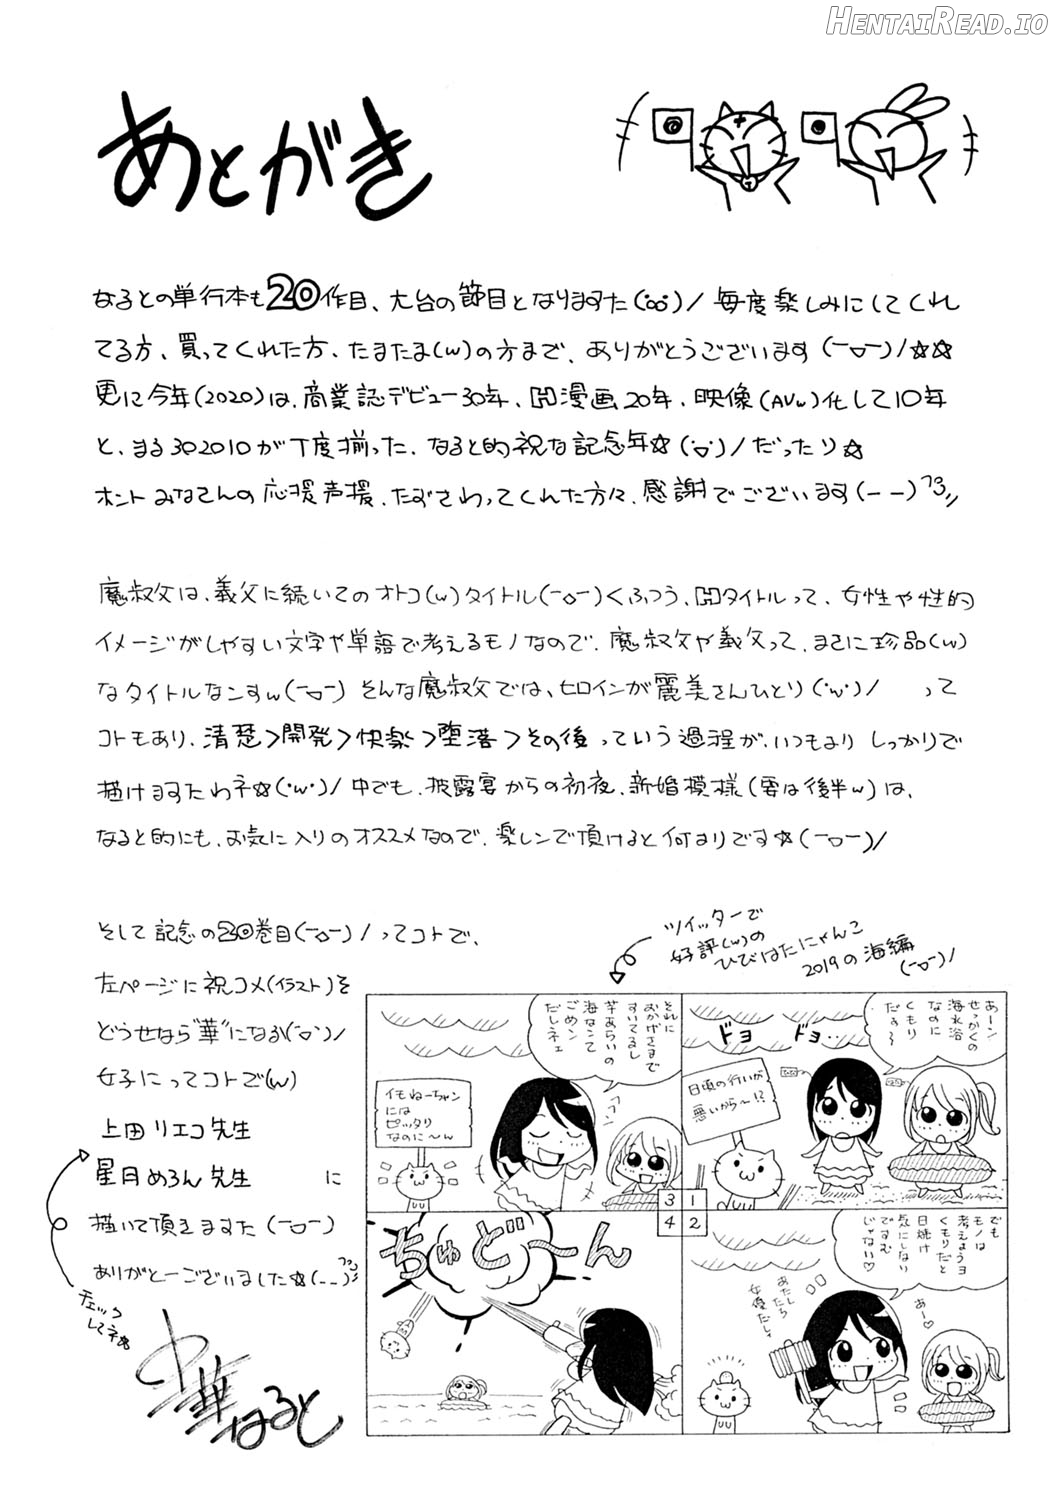 HENTAIREAD.IO
あとがき
なるとの単行本も20作目、大台の節目となりますた(°o°)/毎度楽しみにしてくれ
てる方、買ってくれた方、たまたま(w)の方まで、ありがとうございます(ーoー)/☆☆
更に今年(2020)は、商業誌デビュー30年、H漫画20年、映像(AVw)化して10年
と、まる302010が丁度揃った、なると的祝な記念年☆(˙▽˙)/だったり☆
ホントみなさんの応援声援、たずさわってくれた方々、感謝でございます(ーー)フヨ〃
魔叔父は、義父に続いてのオトコ(w)タイトル(ーoー)くふつう、Hタイトルって、女性や性的
イメージがしやすい文字や単語で考えるモノなので、魔叔父や義父って、まさに珍品(w)
なタイトルなンすw(ーoー)そんな魔叔父では、ヒロインが麗美さんひとり(・w・)/ って
コトもあり、清楚>開発>快楽>堕落>その後っていう過程が、いつもよりしっかりで
描けますたわネ☆(・w・)/中でも、披露宴からの初夜、新婚模様(要は後半w)は、
なると的にも、お気に入りのオススメなので、楽しンで頂けると何よりです☆(ーoー)/
そして記念の20巻目(ーoー)/ってコトで、
左ページに祝コメ(イラスト)を
どうせなら"華"になる(˙▽˙)/
女子にってコトで(w)
上田リエコ先生
星月めろん先生 に
描いて頂きますた(ーoー)
ありがとーございました☆(ーー)フヨ〃
チェック
してネ☆
中華なると
ツイッターで
好評(w)の
ひびはたにゃんこ
2019の海編
(ーoー)/
あーン
せっかくの
海水浴
なのに
くもり
だす〜
ドヨ ドヨ‥
日頃の行いが
悪いから〜!?
1
でも
モノは
考えようヨ
くもりだと
日焼け
気にしない
ですむ
じゃない♡
あー♡
あたしたち
女優だしィ
2
それに
おかげさまで
すいてるし
芋あらいの
海なンて
ごめン
だしネェ
フフン
イモねーちゃン
には
ピッタリ
なのに〜ん
3
ちゅど〜ん
4